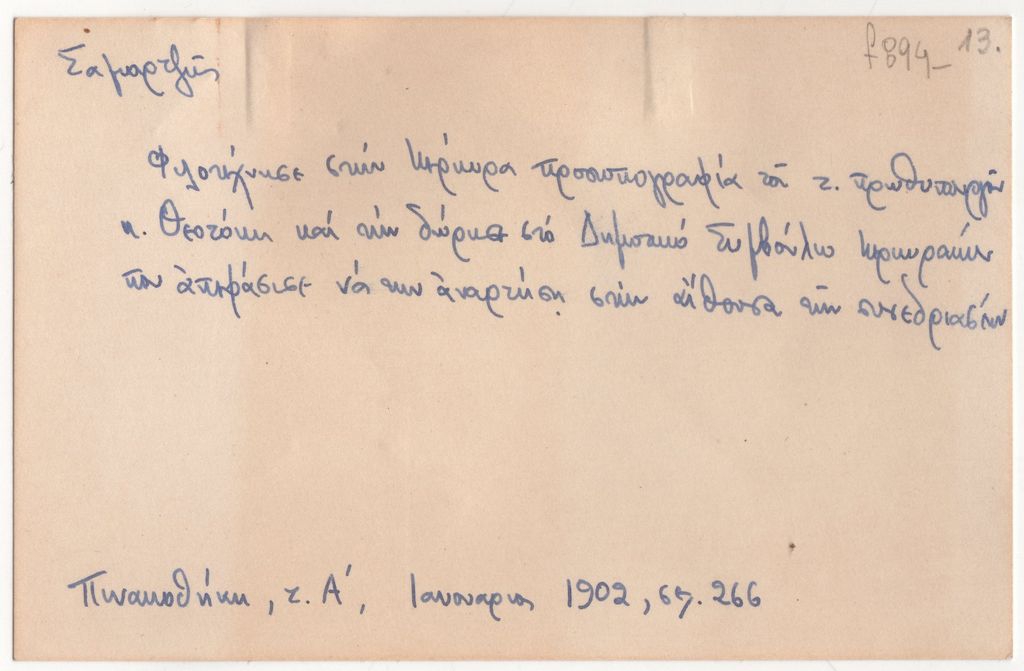 f894- 13.
Σαμαρτζῆς
Φιλοτέχνησε στήν Κέρκυρα προσωπογραφία τοῦ τ. πρωθυπουργοῦ
κ. Θεοτόκη καί τήν δώρησε στό Δημοτικό Συμβούλιο Κερκυραίων
πού ἀπεφάσισε νά τήν ἀναρτήση στήν αἴθουσα τῶν συνεδριάσεων
Πινακοθήκη, τ. Α΄, Ιανουάριος 1902, σελ. 266